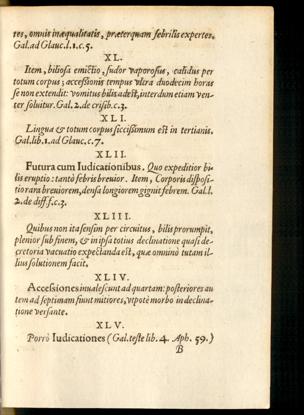 res, omnis inæqualitatis, præterquam febrilis expertes.
Gal. ad Glauc. l. 1. c. 5.
XL.
Item, biliosa emictio, sudor vaporosus, calidus per
totum corpus; accessionis tempus vltra duodecim horas
se non extendit: vomitus bilis adest, interdum etiam ven-
ter soluitur. Gal. 2. de crisib. c. 3.
XLI.
Lingua & totum corpus siccissimum est in tertianis.
Gal. lib. 1. ad Glauc. c. 7.
XLII.
Futura cum Iudicationibus. Quo expeditior bi-
lis eruptio: tantò febris breuior. Item, Corporis disposi-
tio rara breuiorem, densa longiorem gignit febrem. Gal. l.
2. de diff. f. c. 3.
XLIII.
Quibus non ita sensim per circuitus, bilis prorumpit,
plenior sub finem, & in ipsa totius declinatione quasi de-
cretoria vacuatio expectanda est, quæ omninò tutam il-
lius solutionem facit.
XLIV.
Accessiones inualescunt ad quartam: posteriores au
tem ad septimam fiunt mitiores, vtpotè morbo in declina-
tione versante.
XLV.
Porrò Iudicationes (Gal. teste lib. 4. Aph. 59.)
B